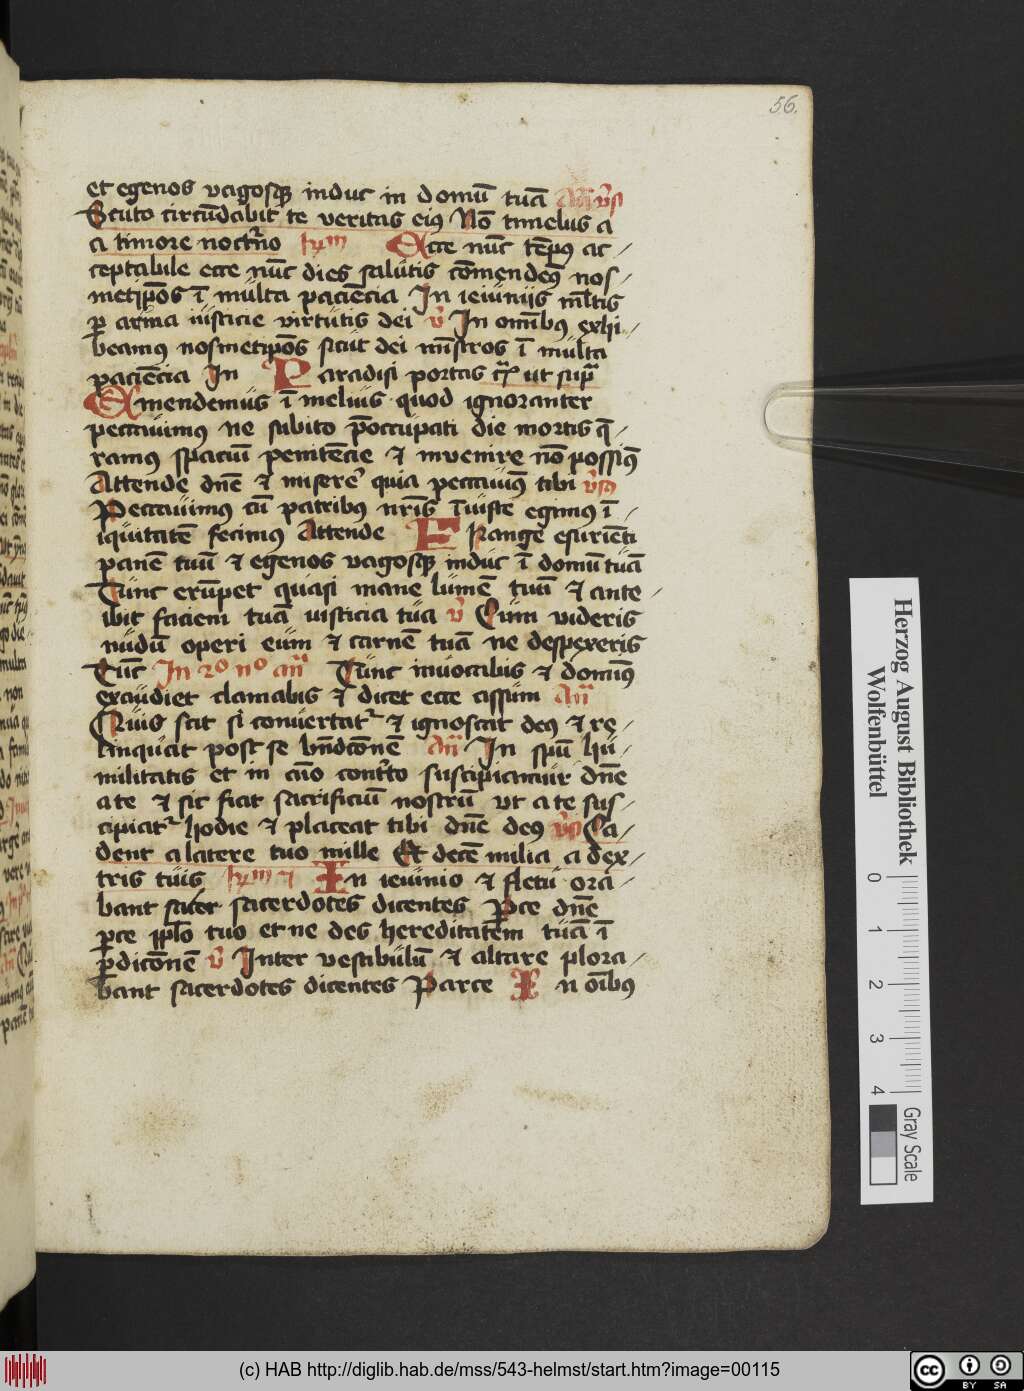 56.
et egenos vagosq̄ induc in domū tuā Añ v̄s
Scuto circūdabit te veritas eiꝯ Nō timebis a
a timore noct̄no
Ecce nūc tēpꝯ ac-
ceptabile ecce nūc dies salutis cōmendeꝯ nos-
metip̄os ī multa paciēcia In ieiunijs ml̄tis
ꝑ arma iusticie virtutis dei v̄ In omībꝯ exhi-
beamus nosmetip̄os sicut dei mīstros ī multa
paciēcia In Paradisi portas ut sup̄
Emendemus ī melius quod ignoranter
peccauimꝯ ne subito p̄occupati die mortis q̄-
ramꝯ spaciū penitēcie et inuenire nō possiꝯ
Attende dn̄e et misere quia peccauiꝯ tibi v̄s
Peccauimꝯ cū patribꝯ nr̄is īiuste egimꝯ ī-
iquitatē fecimꝯ Attende Frange esuriēti
panē tuū et egenos vagosq̄ induc ī domū tuā
Tunc erūpet quasi mane lumē tuū et ante-
ibit faciem tuā iusticia tua v̄ Cum videris
nudū operi eum et carnē tuā ne despexeris
Tūc In 2o no an̄ Tunc inuocabis et domiꝯ
exaudiet clamabis et dicet ecce assum An̄
Quis scit si conuertat et ignoscat deꝯ et re-
linquat post se bn̄dcōnē An̄ In sp̄u hu-
militatis et in aīo cont̄to suscipiamur dn̄e
a te et sic fiat sacrificiū nostrū vt a te sus-
cipiat hodie et placeat tibi dn̄e deꝯ v̄s Ca-
dent a latere tuo mille Et decē milia a dex-
tris tuis In ieiunio et fletu ora-
bant sacer sacerdotes dicentes ꝑce dn̄e
ꝑce pplo tuo et ne des hereditatem tuā ī
ꝑdicōnē v̄ Inter vestibulū et altare plora-
bant sacerdotes dicentes Parce In oībꝯ
Herzog August Bibliothek
Wolfenbüttel
0 1 2 3 4
Gray Scale
(c) HAB http://diglib.hab.de/mss/543-helmst/start.htm?image=00115
cc BY SA